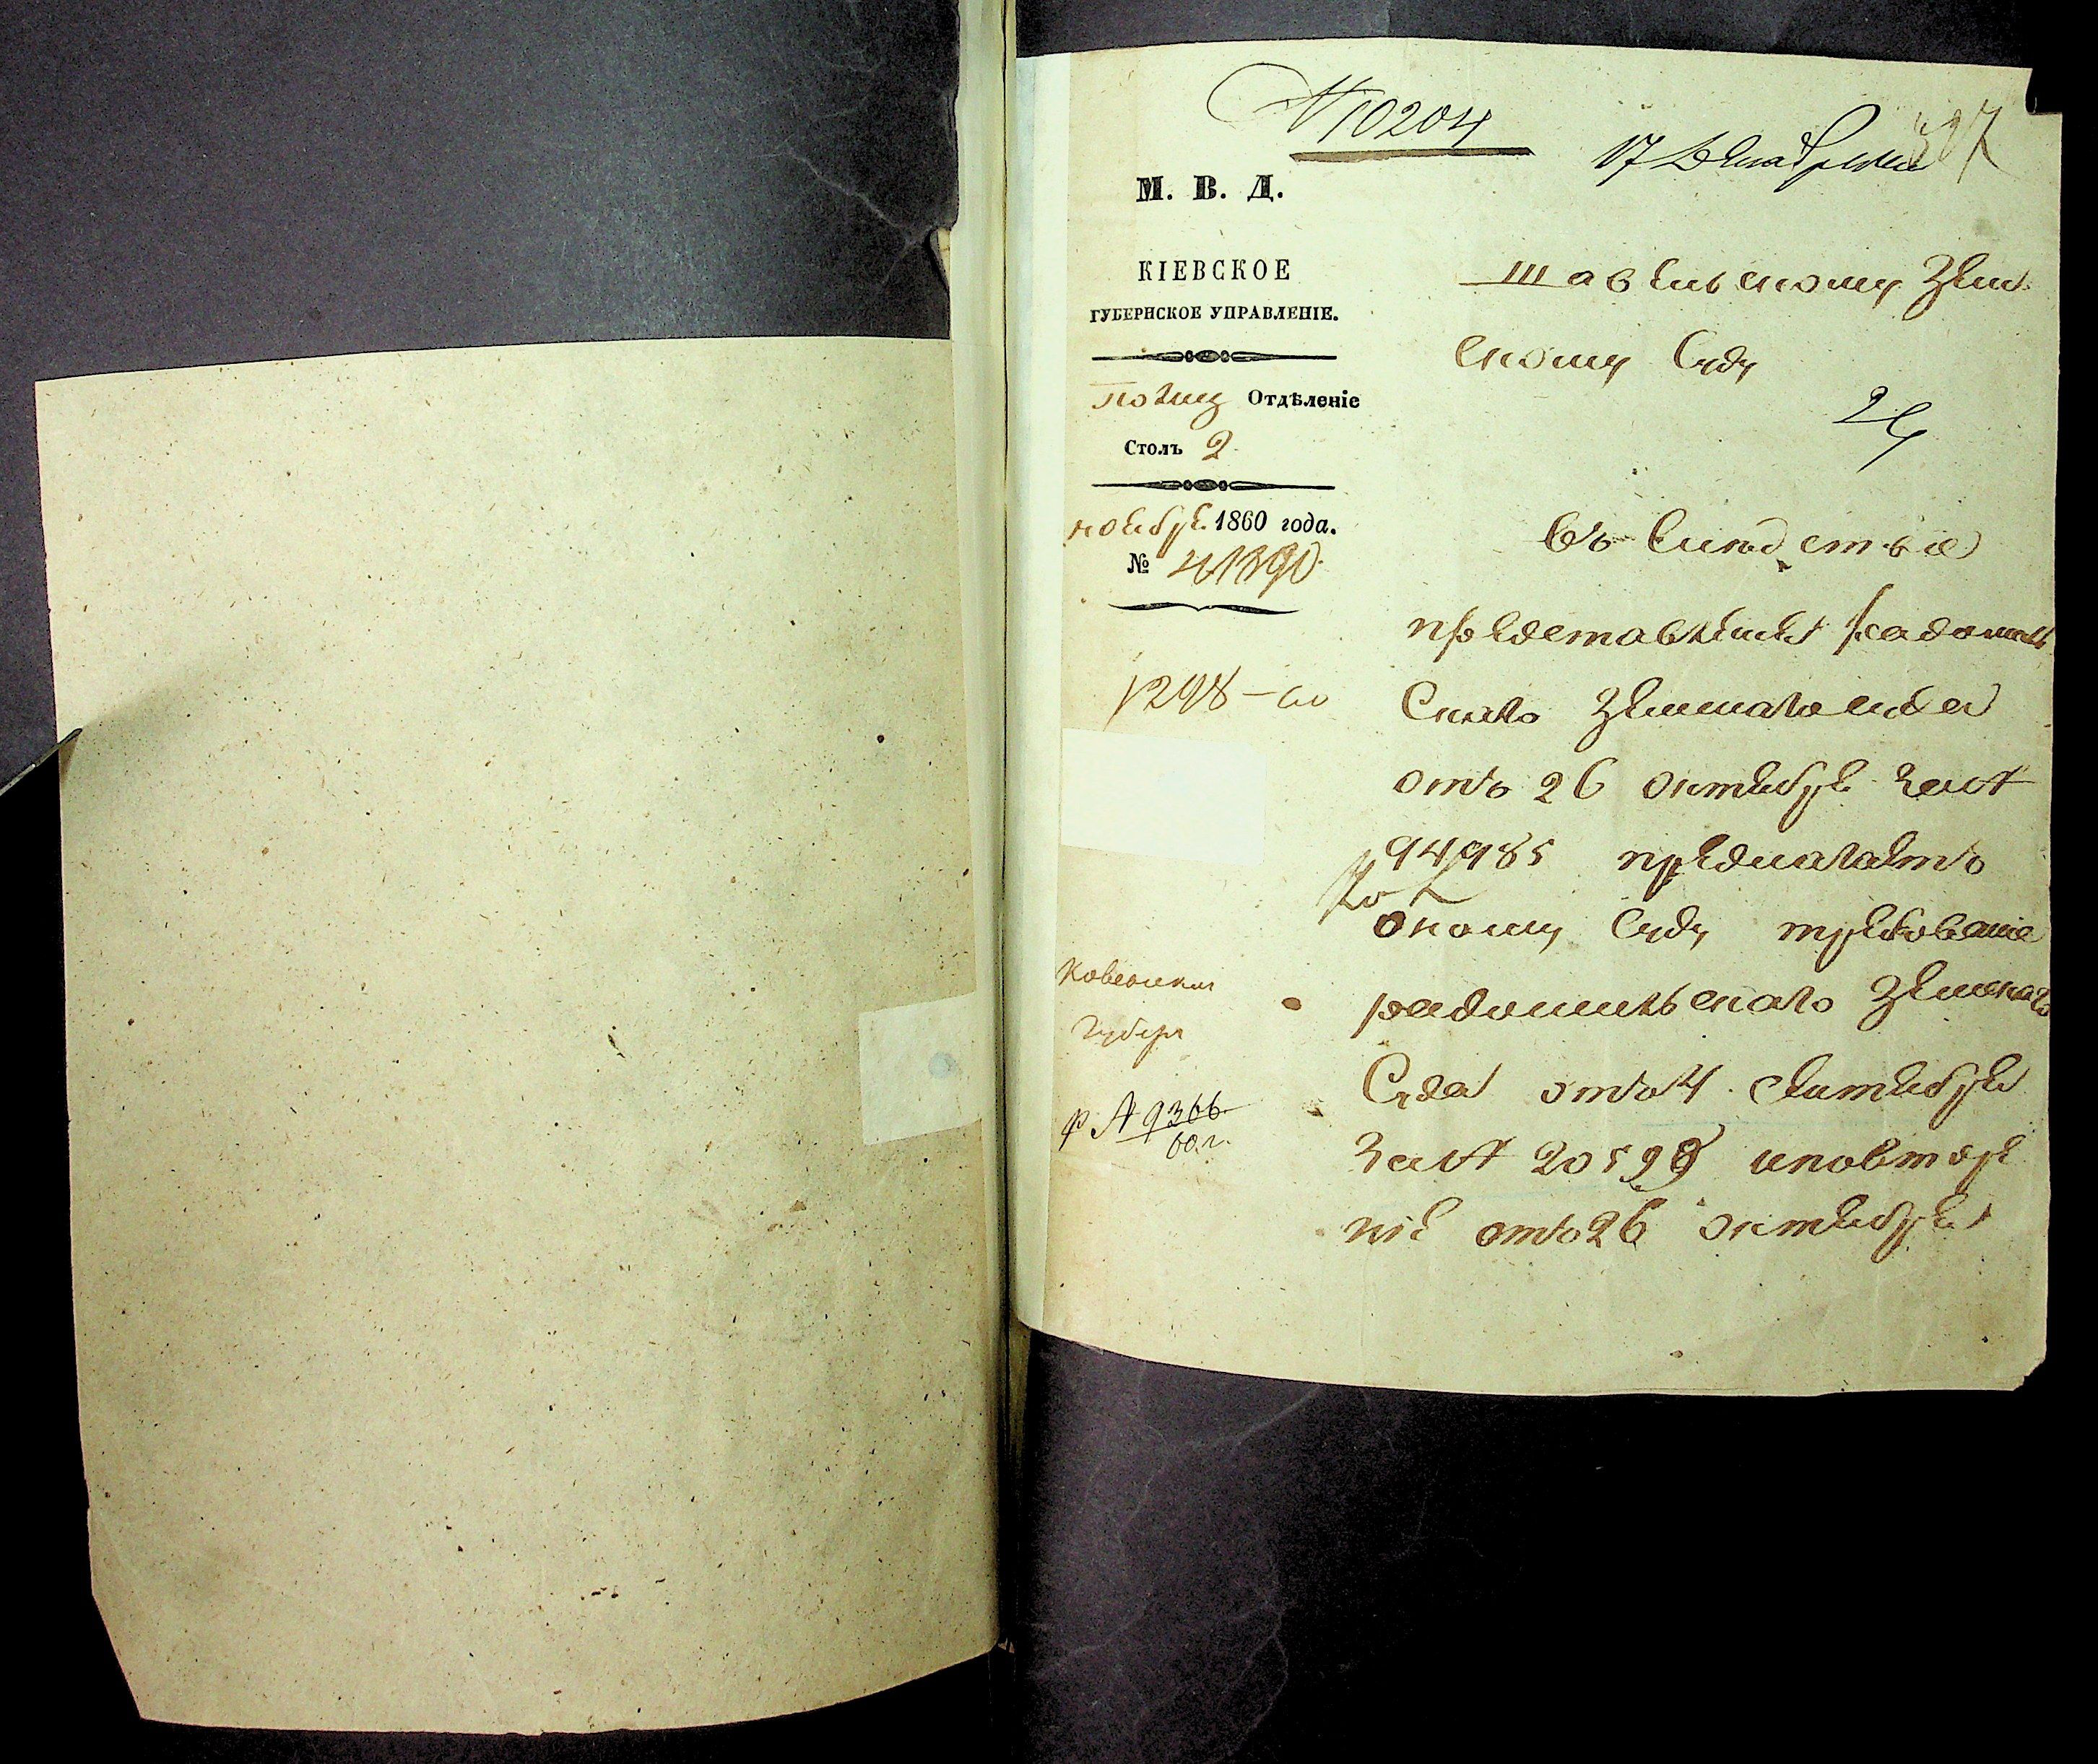 № 10204
17 Декабря
М. В. Д.
КІЕВСКОЕ
ГУБЕРНСКОЕ УПРАВЛЕНІЕ.
Отдѣленіе
Столъ 2
ноября 1860 года.
№ 41390
Ковенская
Губерн
9366
60 г.
Шавельскому Зем
скому Суду
24
Въ слѣдствіе
представленія Радомысль
скаго Земскаго суда
отъ 26 октября за №
предлагаетъ
оному Суду требованіе
радомысльскаго Земскаго
Суда отъ 4 сентября
за № 20598 и повторе
ніе отъ 26 октября